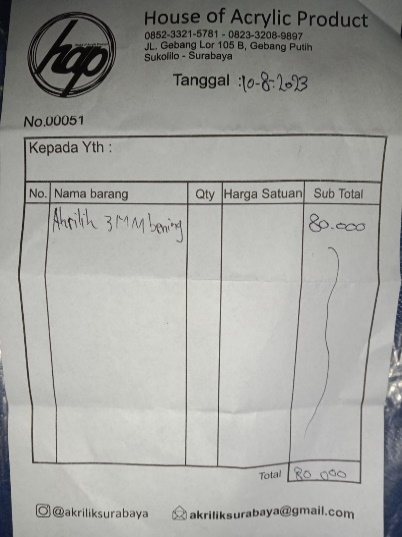 hap
House of Acrylic Product
0852-3321-5781 - 0823-3208-9897
JL. Gebang Lor 105 B, Gebang Putih
Sukolilo - Surabaya
Tanggal : 10-8-2023
No.00051
Kepada Yth :
No. Nama barang Qty Harga Satuan Sub Total
Akrilik 3MM bening 80.000
Total 80.000
@akriliksurabaya akriliksurabaya@gmail.com